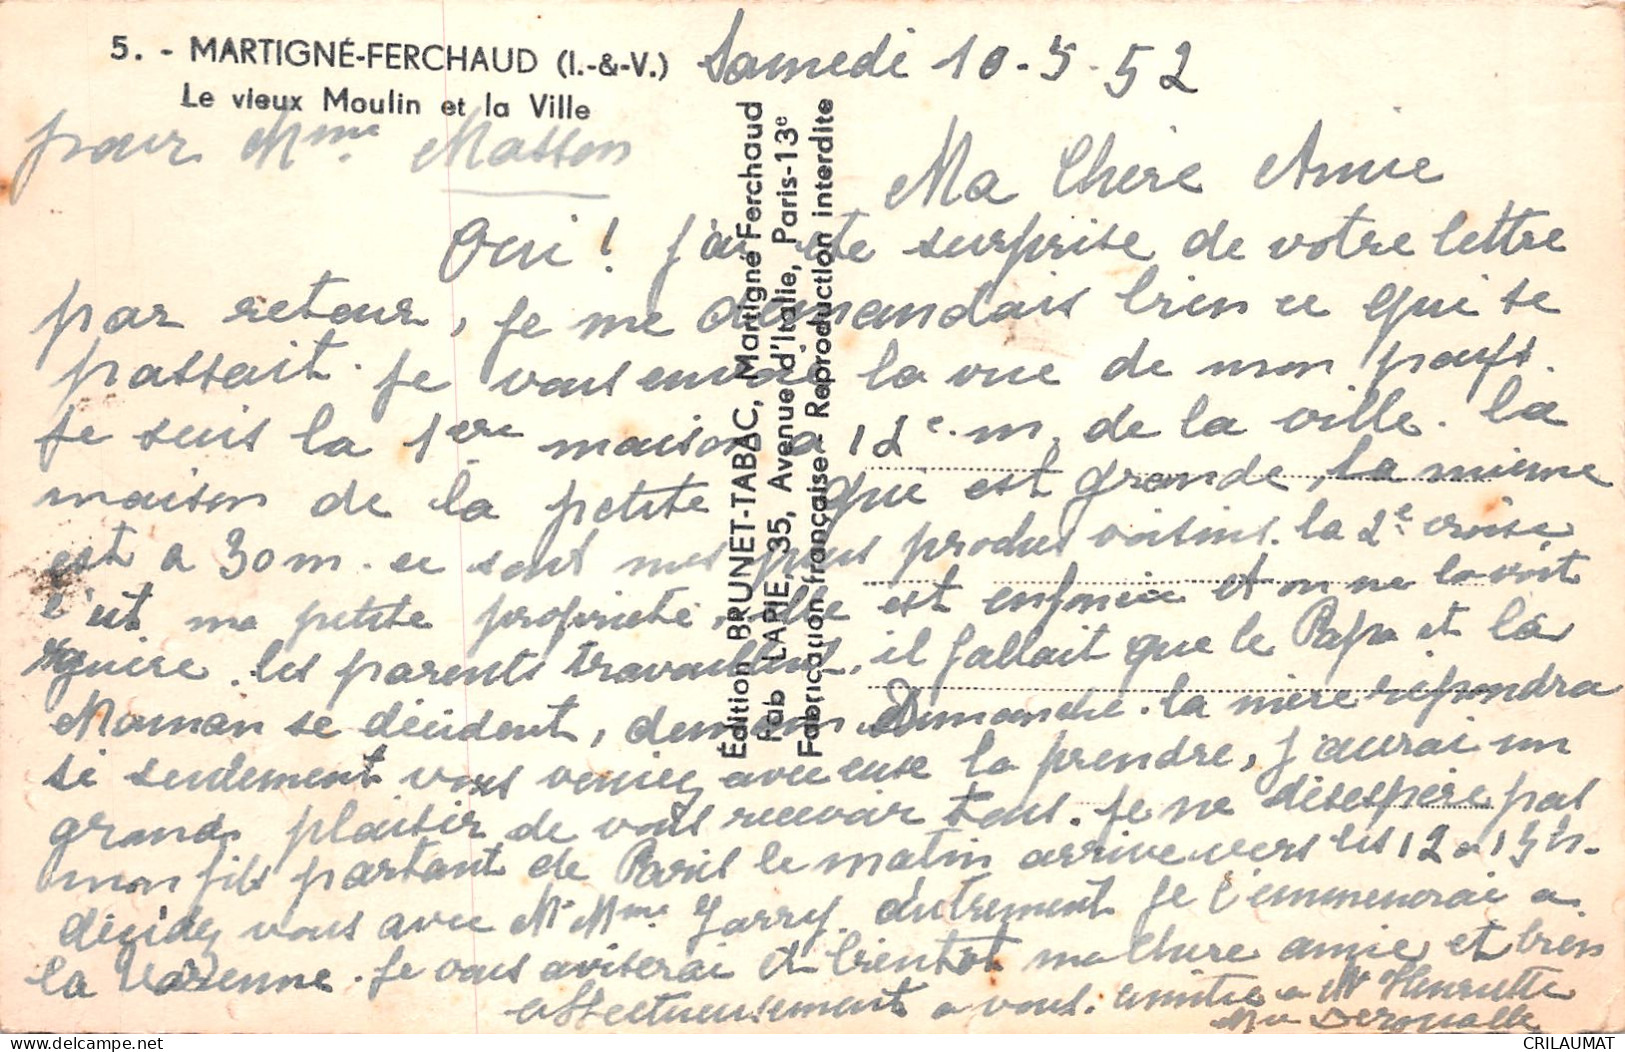 5. - MARTIGNÉ-FERCHAUD (I.-&-V.)
Le vieux Moulin et la Ville
Samedi 10-5-52
pour Mme Masson
Ma Chère Amie
Oui ! j'ai été surprise de votre lettre
par retour, je me demandais bien ce qui se
passait. je vous envoie la vue de mon pays.
je suis la 1ère maison a 12 m. de la ville. la
maison de la petite qui est grande, la mienne
est a 30 m. ce sont mes plus voisins. la 2e croise
c'est ma petite propriété, elle est et on ne la voit
guère. les parents travaillent, il fallait que le Papa et la
Maman se décident, demain Dimanche. la mère répondra
si seulement vous veniez avec euse la prendre, j'aurai un
grand plaisir de vous recevoir tous. je ne désespère pas
mon fils partant de Paris le matin arrive vers les 12 a 13 h.
décidez vous avec Mr Mme Jarry. autrement je l'emmenerai a
la Varenne. je vous aviserai et bientot ma chère amie et bien
affectueusement a vous. amitié a Mr Henriette
Édition BRUNET-TABAC, Martigné-Ferchaud
Fab LAPIE, 35, Avenue d'Italie, Paris-13e
Fabrication française - Reproduction interdite
CRILAUMAT